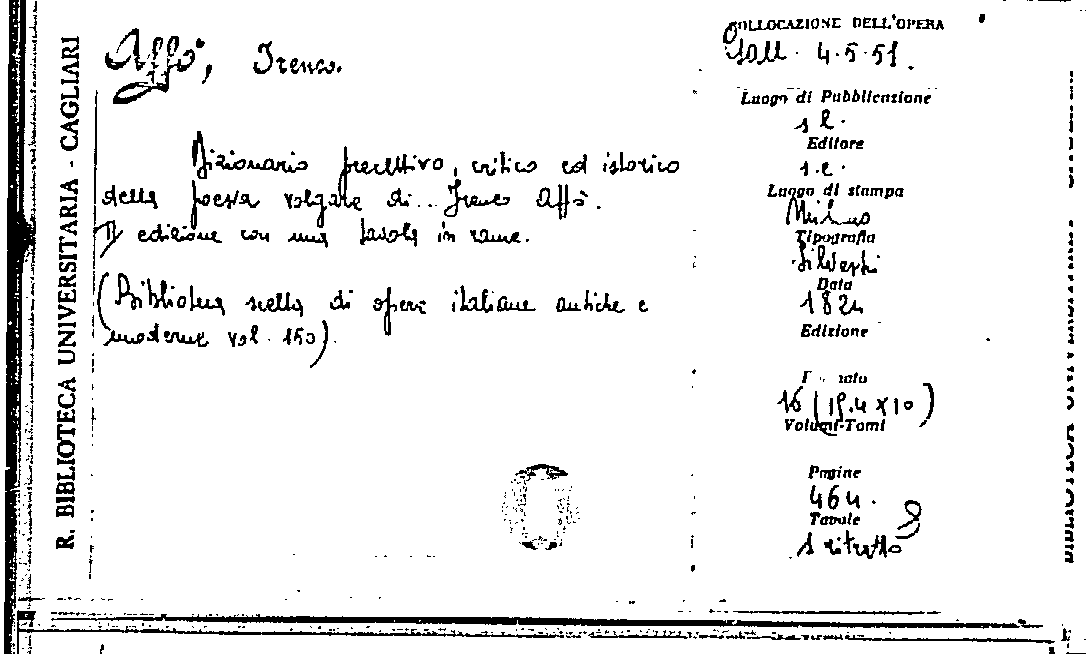 R. BIBLIOTECA UNIVERSITARIA - CAGLIARI
Affò, Ireneo.
Dizionario precettivo, critico ed istorico
della poesia volgare di.. Ireneo Affò.
IIª edizione con una tavola in rame.
(Biblioteca scelta di opere italiane antiche e
moderne vol. 150).
COLLOCAZIONE DELL'OPERA
Gall. 4.5.51.
Luogo di Pubblicazione
s l.
Editore
s.e.
Luogo di stampa
Milano
Tipografia
Silvestri
Data
1824
Edizione
16 (15.4 x 10)
Volumi-Tomi
Pagine
464.
Tavole
1 ritratto